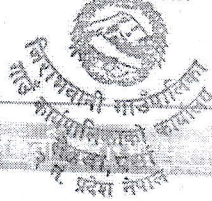 जिराभवानी गाउँपालिका
गाउँ कार्यपालिकाको कार्यालय
नं. प्रदेश नेपाल